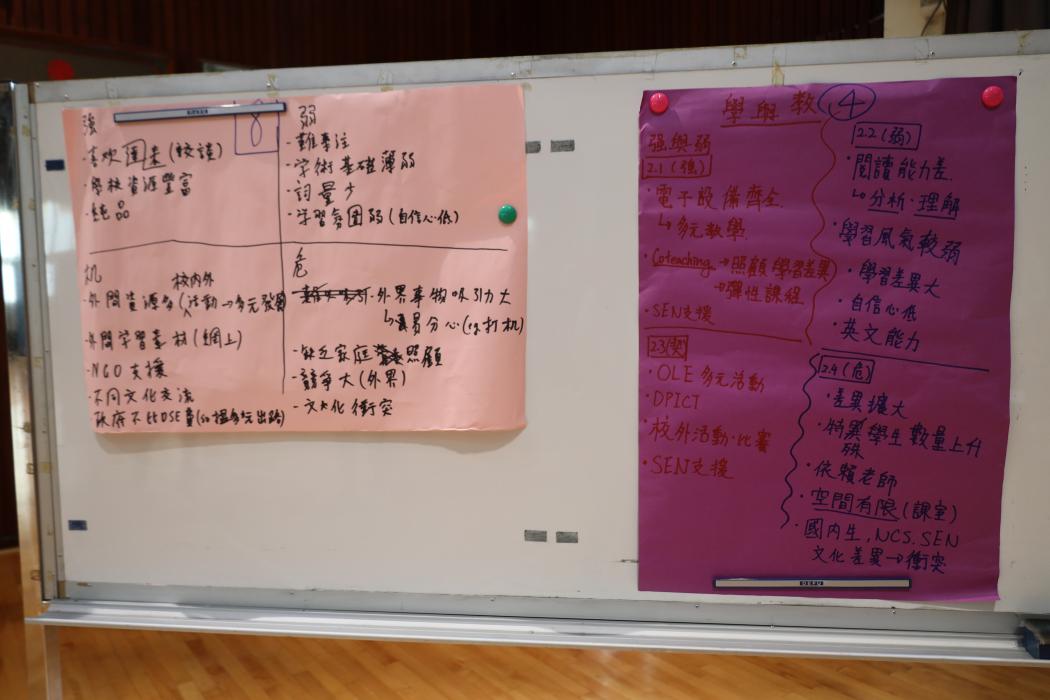 8
強
·喜欢回来(較読)
·學校資源豐富
·純品
弱
·難專注
·学術基礎薄弱
·詞量少
·学習氛圍弱(自信心低)
机
校内外
·外間資源多(活動→多元發展
·外間学習素材(網上)
·NGO支援
·不同文化交流
政府不比DSE量(so搵多元出路)
危
·外界事物吸引力大
↳容易分心(eg打机)
·缺乏家庭照顧
·競爭大(外界)
·文化衝突
學與教 4
强與弱
2.1(強)
·電子設備齊全
↳多元教學
·Coteaching→照顧學習差異
→彈性課程
·SEN支援
2.2(弱)
·閱讀能力差
↳分析·理解
·學習風氣較弱
·學習差異大
·自信心低
·英文能力
2.3(契)
·OLE多元活動
·DPICT
·校外活動·比賽
·SEN支援
2.4(危)
·差異擴大
·特殊學生數量上升
·依賴老師
·空間有限(課室)
·國内生,NCS.SEN
文化差異→衝突
DEFU